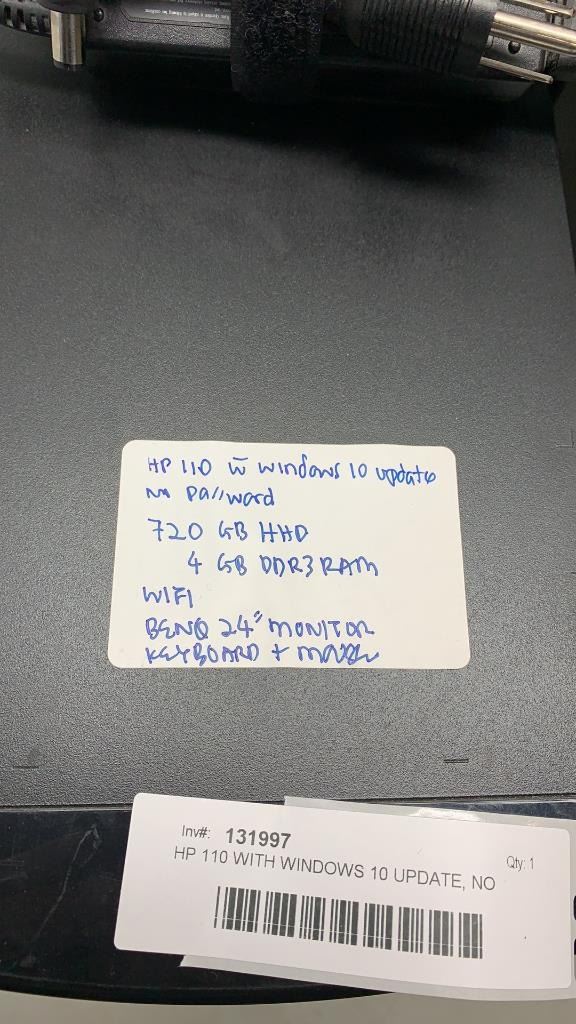 HP 110 w̄ windows 10 update
no password
720 GB HHD
4 GB DDR3 RAM
WIFI
BENQ 24" MONITOR
KEYBOARD + MOUSE
Inv#: 131997
Qty: 1
HP 110 WITH WINDOWS 10 UPDATE, NO